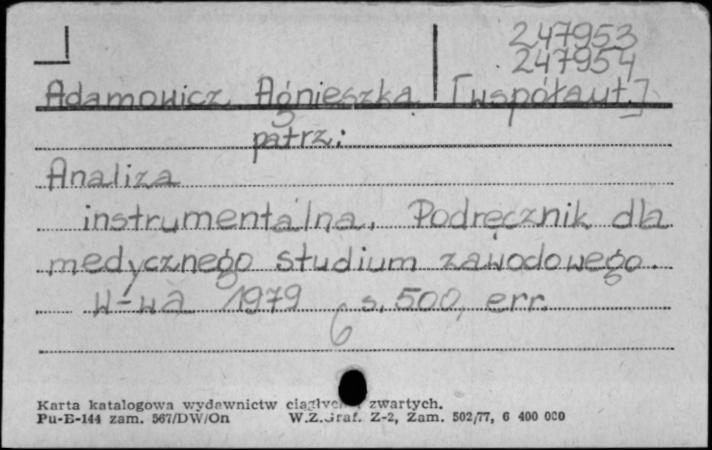 247953
247954
Adamowicz Agnieszka [współaut.]
patrz:
Analiza
instrumentalna. Podręcznik dla
medycznego studium zawodowego.
W-wa 1979 s. 500, err.
6
Karta katalogowa wydawnictw zwartych.
Pu-E-144 zam. 567/DW/On W.Z.Graf. Z-2, Zam. 502/77, 6 400 000